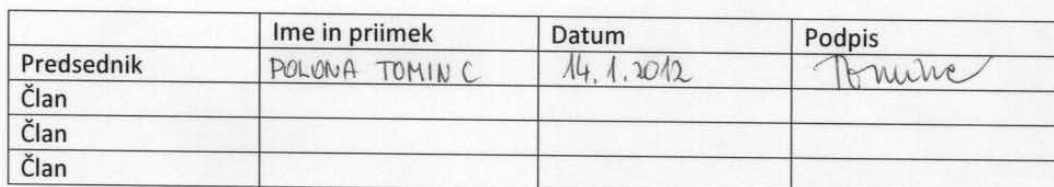 Ime in priimek Datum Podpis
Predsednik POLONA TOMINC 14.1.2012 Tominc
Član
Član
Član